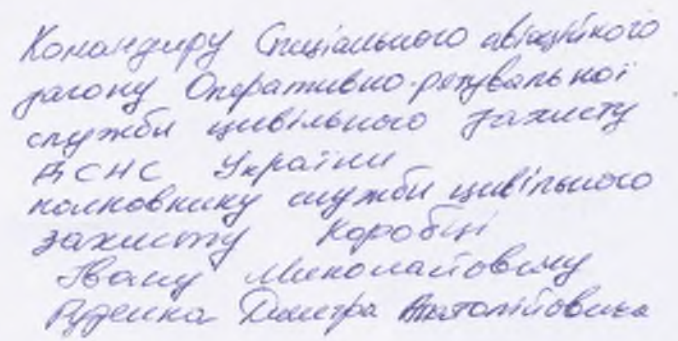 Командиру Спеціального авіаційного
загону Оперативно-рятувальної
служби цивільного захисту
ДСНС України
полковнику служби цивільного
захисту Коробці
Івану Миколайовичу
Руденка Дмитра Анатолійовича